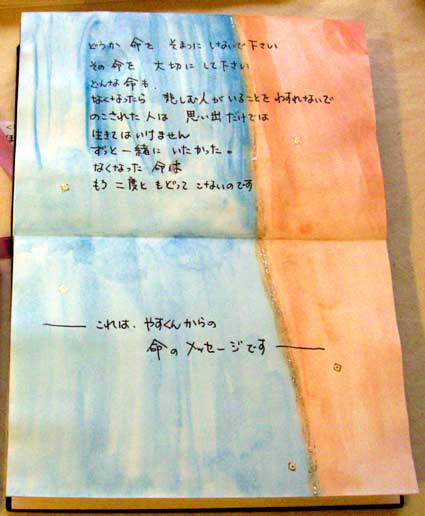 どうか 命を そまつに しないで下さい
その 命を 大切に して下さい
どんな 命も、
なくなったら 悲しむ人が いることを わすれないで
のこされた 人は 思い出だけでは
生きては いけません
ずっと 一緒に いたかった。
なくなった 命は
もう 二度と もどって こないのです
これは、やすくんからの
命の メッセージです